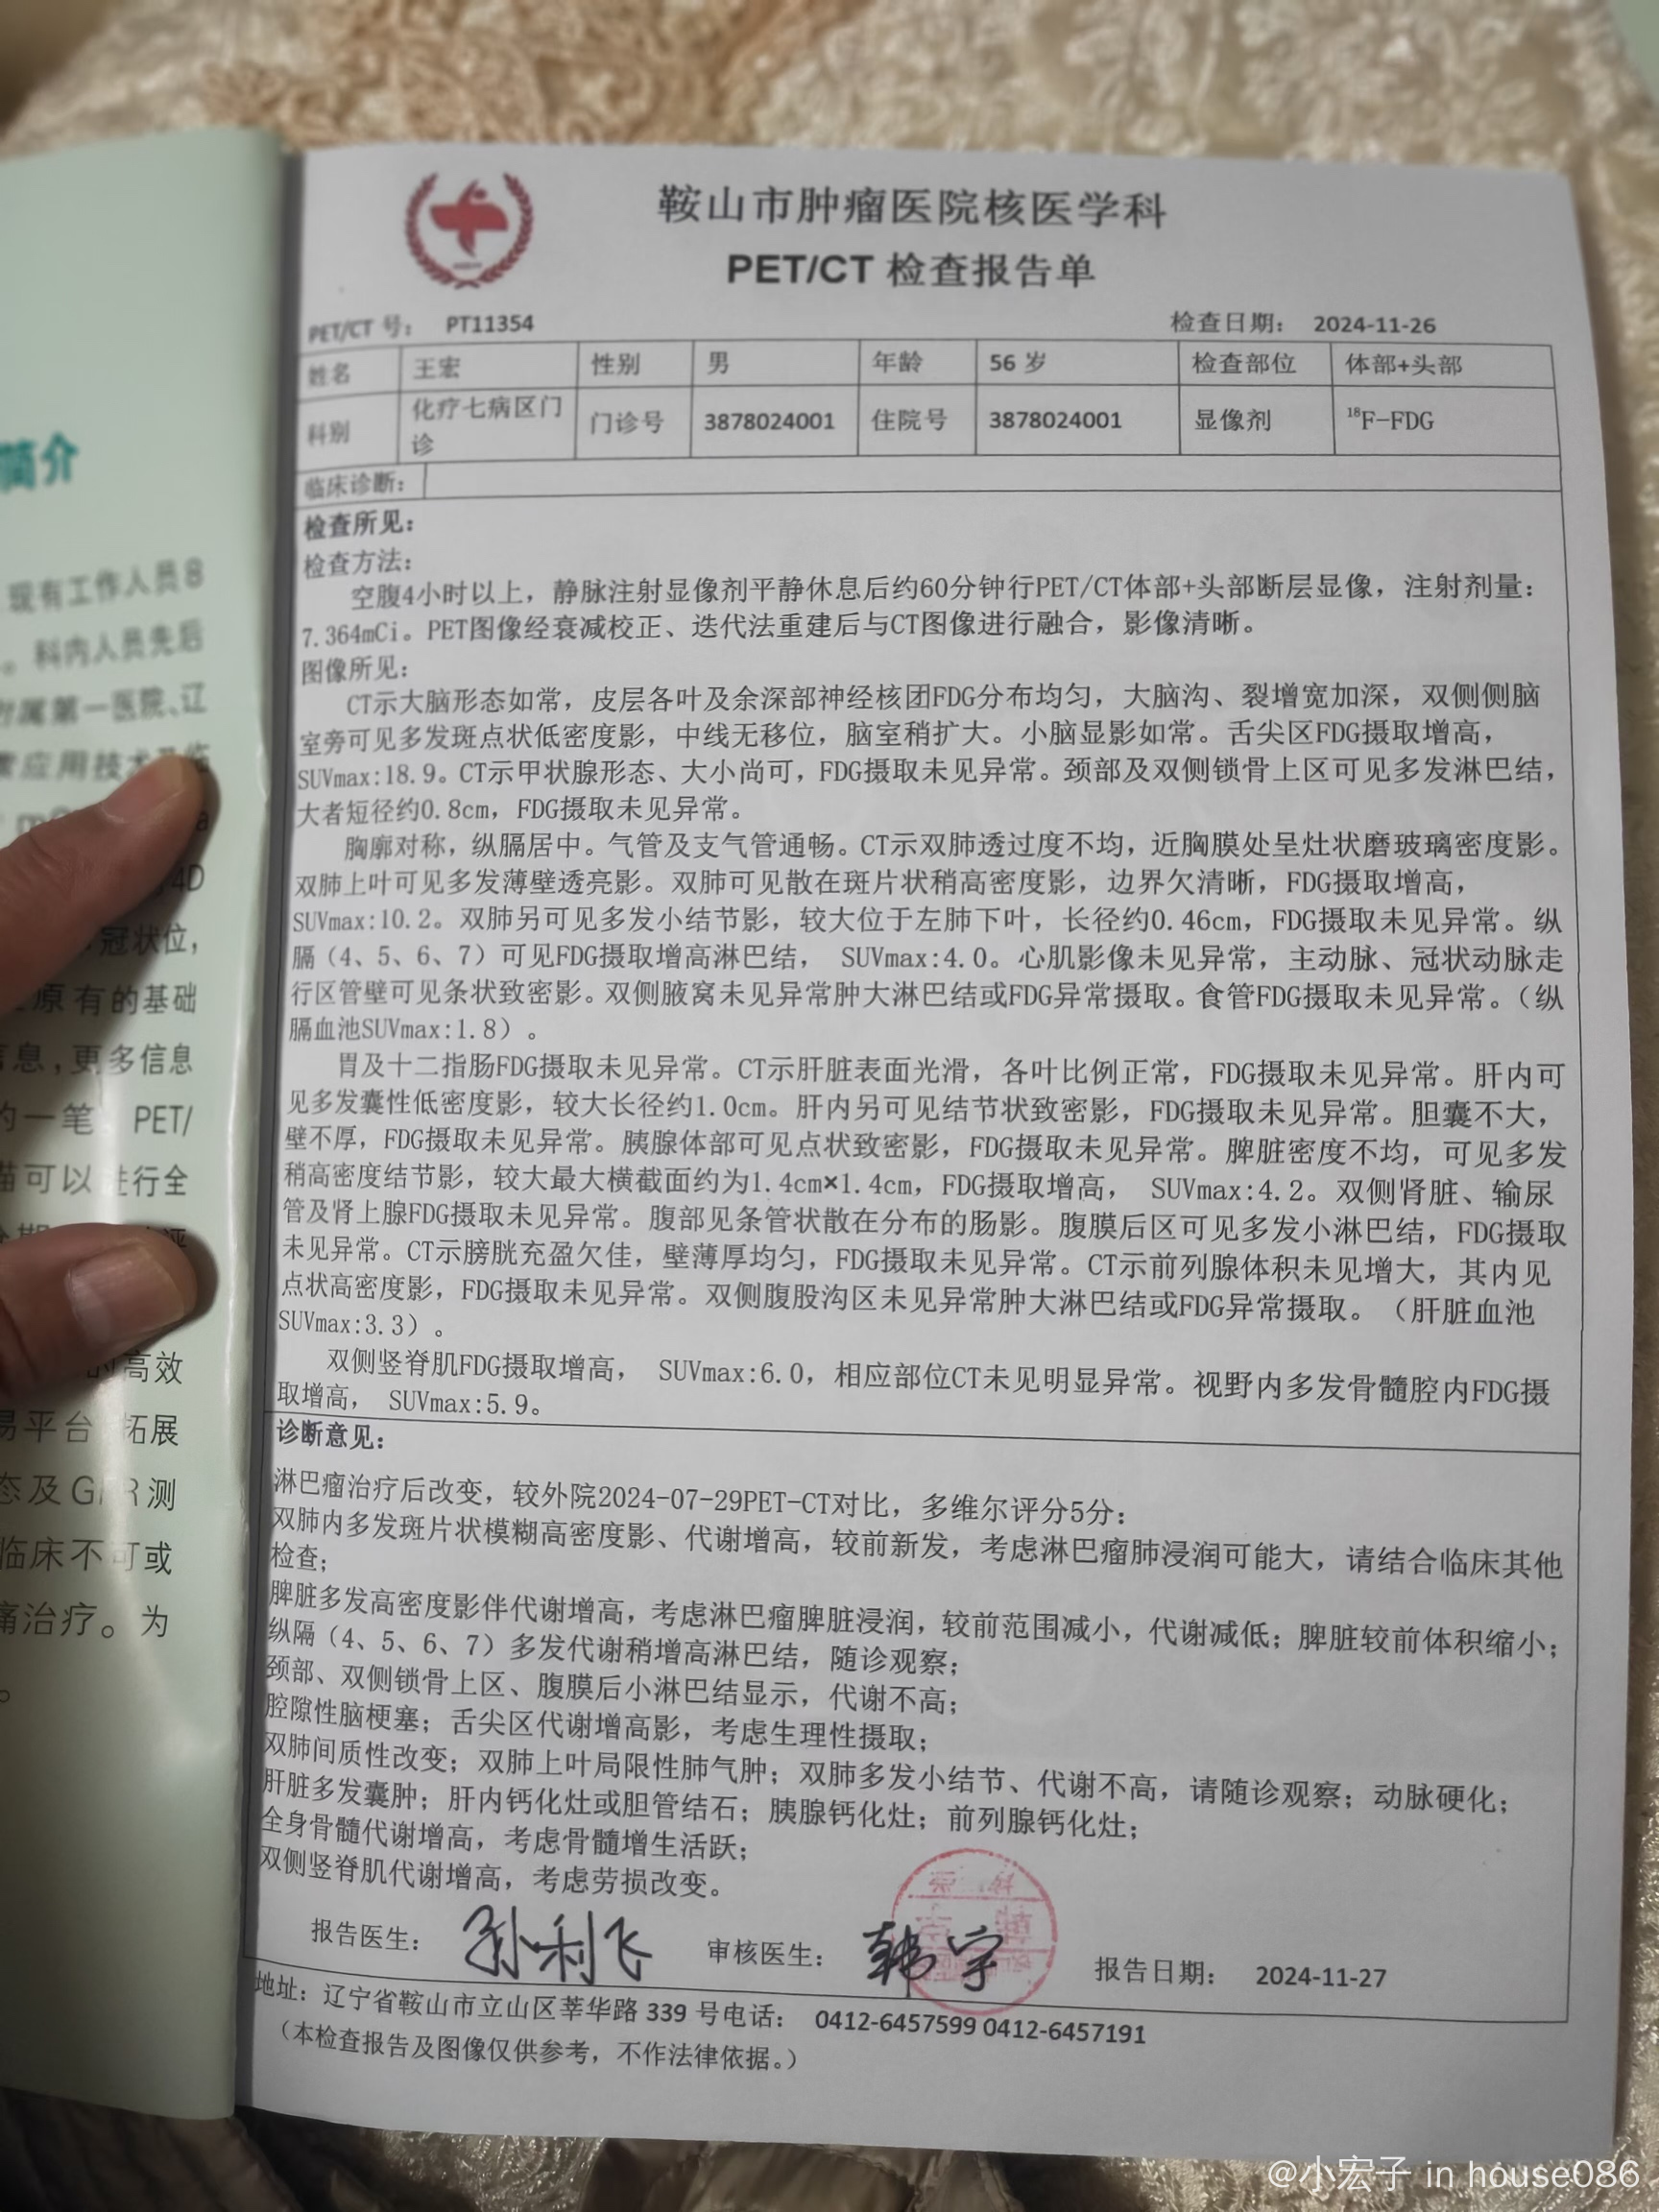 鞍山市肿瘤医院核医学科
PET/CT 检查报告单
PET/CT 号： PT11354 检查日期： 2024-11-26
姓名 王宏 性别 男 年龄 56 岁 检查部位 体部+头部
科别 化疗七病区门诊 门诊号 3878024001 住院号 3878024001 显像剂 ¹⁸F-FDG
临床诊断：
检查所见：
检查方法：
空腹4小时以上，静脉注射显像剂平静休息后约60分钟行PET/CT体部+头部断层显像，注射剂量：
7.364mCi。PET图像经衰减校正、迭代法重建后与CT图像进行融合，影像清晰。
图像所见：
CT示大脑形态如常，皮层各叶及余深部神经核团FDG分布均匀，大脑沟、裂增宽加深，双侧侧脑
室旁可见多发斑点状低密度影，中线无移位，脑室稍扩大。小脑显影如常。舌尖区FDG摄取增高，
SUVmax:18.9。CT示甲状腺形态、大小尚可，FDG摄取未见异常。颈部及双侧锁骨上区可见多发淋巴结，
大者短径约0.8cm，FDG摄取未见异常。
胸廓对称，纵膈居中。气管及支气管通畅。CT示双肺透过度不均，近胸膜处呈灶状磨玻璃密度影。
双肺上叶可见多发薄壁透亮影。双肺可见散在斑片状稍高密度影，边界欠清晰，FDG摄取增高，
SUVmax:10.2。双肺另可见多发小结节影，较大位于左肺下叶，长径约0.46cm，FDG摄取未见异常。纵
膈（4、5、6、7）可见FDG摄取增高淋巴结， SUVmax:4.0。心肌影像未见异常，主动脉、冠状动脉走
行区管壁可见条状致密影。双侧腋窝未见异常肿大淋巴结或FDG异常摄取。食管FDG摄取未见异常。（纵
膈血池SUVmax:1.8）。
胃及十二指肠FDG摄取未见异常。CT示肝脏表面光滑，各叶比例正常，FDG摄取未见异常。肝内可
见多发囊性低密度影，较大长径约1.0cm。肝内另可见结节状致密影，FDG摄取未见异常。胆囊不大，
壁不厚，FDG摄取未见异常。胰腺体部可见点状致密影，FDG摄取未见异常。脾脏密度不均，可见多发
稍高密度结节影，较大最大横截面约为1.4cm×1.4cm，FDG摄取增高， SUVmax:4.2。双侧肾脏、输尿
管及肾上腺FDG摄取未见异常。腹部见条管状散在分布的肠影。腹膜后区可见多发小淋巴结，FDG摄取
未见异常。CT示膀胱充盈欠佳，壁薄厚均匀，FDG摄取未见异常。CT示前列腺体积未见增大，其内见
点状高密度影，FDG摄取未见异常。双侧腹股沟区未见异常肿大淋巴结或FDG异常摄取。（肝脏血池
SUVmax:3.3）。
双侧竖脊肌FDG摄取增高， SUVmax:6.0，相应部位CT未见明显异常。视野内多发骨髓腔内FDG摄
取增高， SUVmax:5.9。
诊断意见：
淋巴瘤治疗后改变，较外院2024-07-29PET-CT对比，多维尔评分5分：
双肺内多发斑片状模糊高密度影、代谢增高，较前新发，考虑淋巴瘤肺浸润可能大，请结合临床其他
检查；
脾脏多发高密度影伴代谢增高，考虑淋巴瘤脾脏浸润，较前范围减小，代谢减低；脾脏较前体积缩小；
纵隔（4、5、6、7）多发代谢稍增高淋巴结，随诊观察；
颈部、双侧锁骨上区、腹膜后小淋巴结显示，代谢不高；
腔隙性脑梗塞；舌尖区代谢增高影，考虑生理性摄取；
双肺间质性改变；双肺上叶局限性肺气肿；双肺多发小结节、代谢不高，请随诊观察；动脉硬化；
肝脏多发囊肿；肝内钙化灶或胆管结石；胰腺钙化灶；前列腺钙化灶；
全身骨髓代谢增高，考虑骨髓增生活跃；
双侧竖脊肌代谢增高，考虑劳损改变。
报告医生： 孙利飞 审核医生： 韩宇 报告日期： 2024-11-27
地址：辽宁省鞍山市立山区莘华路 339 号电话： 0412-6457599 0412-6457191
（本检查报告及图像仅供参考，不作法律依据。）
简介
现有工作人员8
。科内人员先后
附属第一医院、辽
应用技术及临
4D
冠状位，
原有的基础
信息，更多信息
的一笔 PET/
描可以进行全
的高效
易平台 拓展
态及GFR测
临床不可或
痛治疗。为
@小宏子 in house086